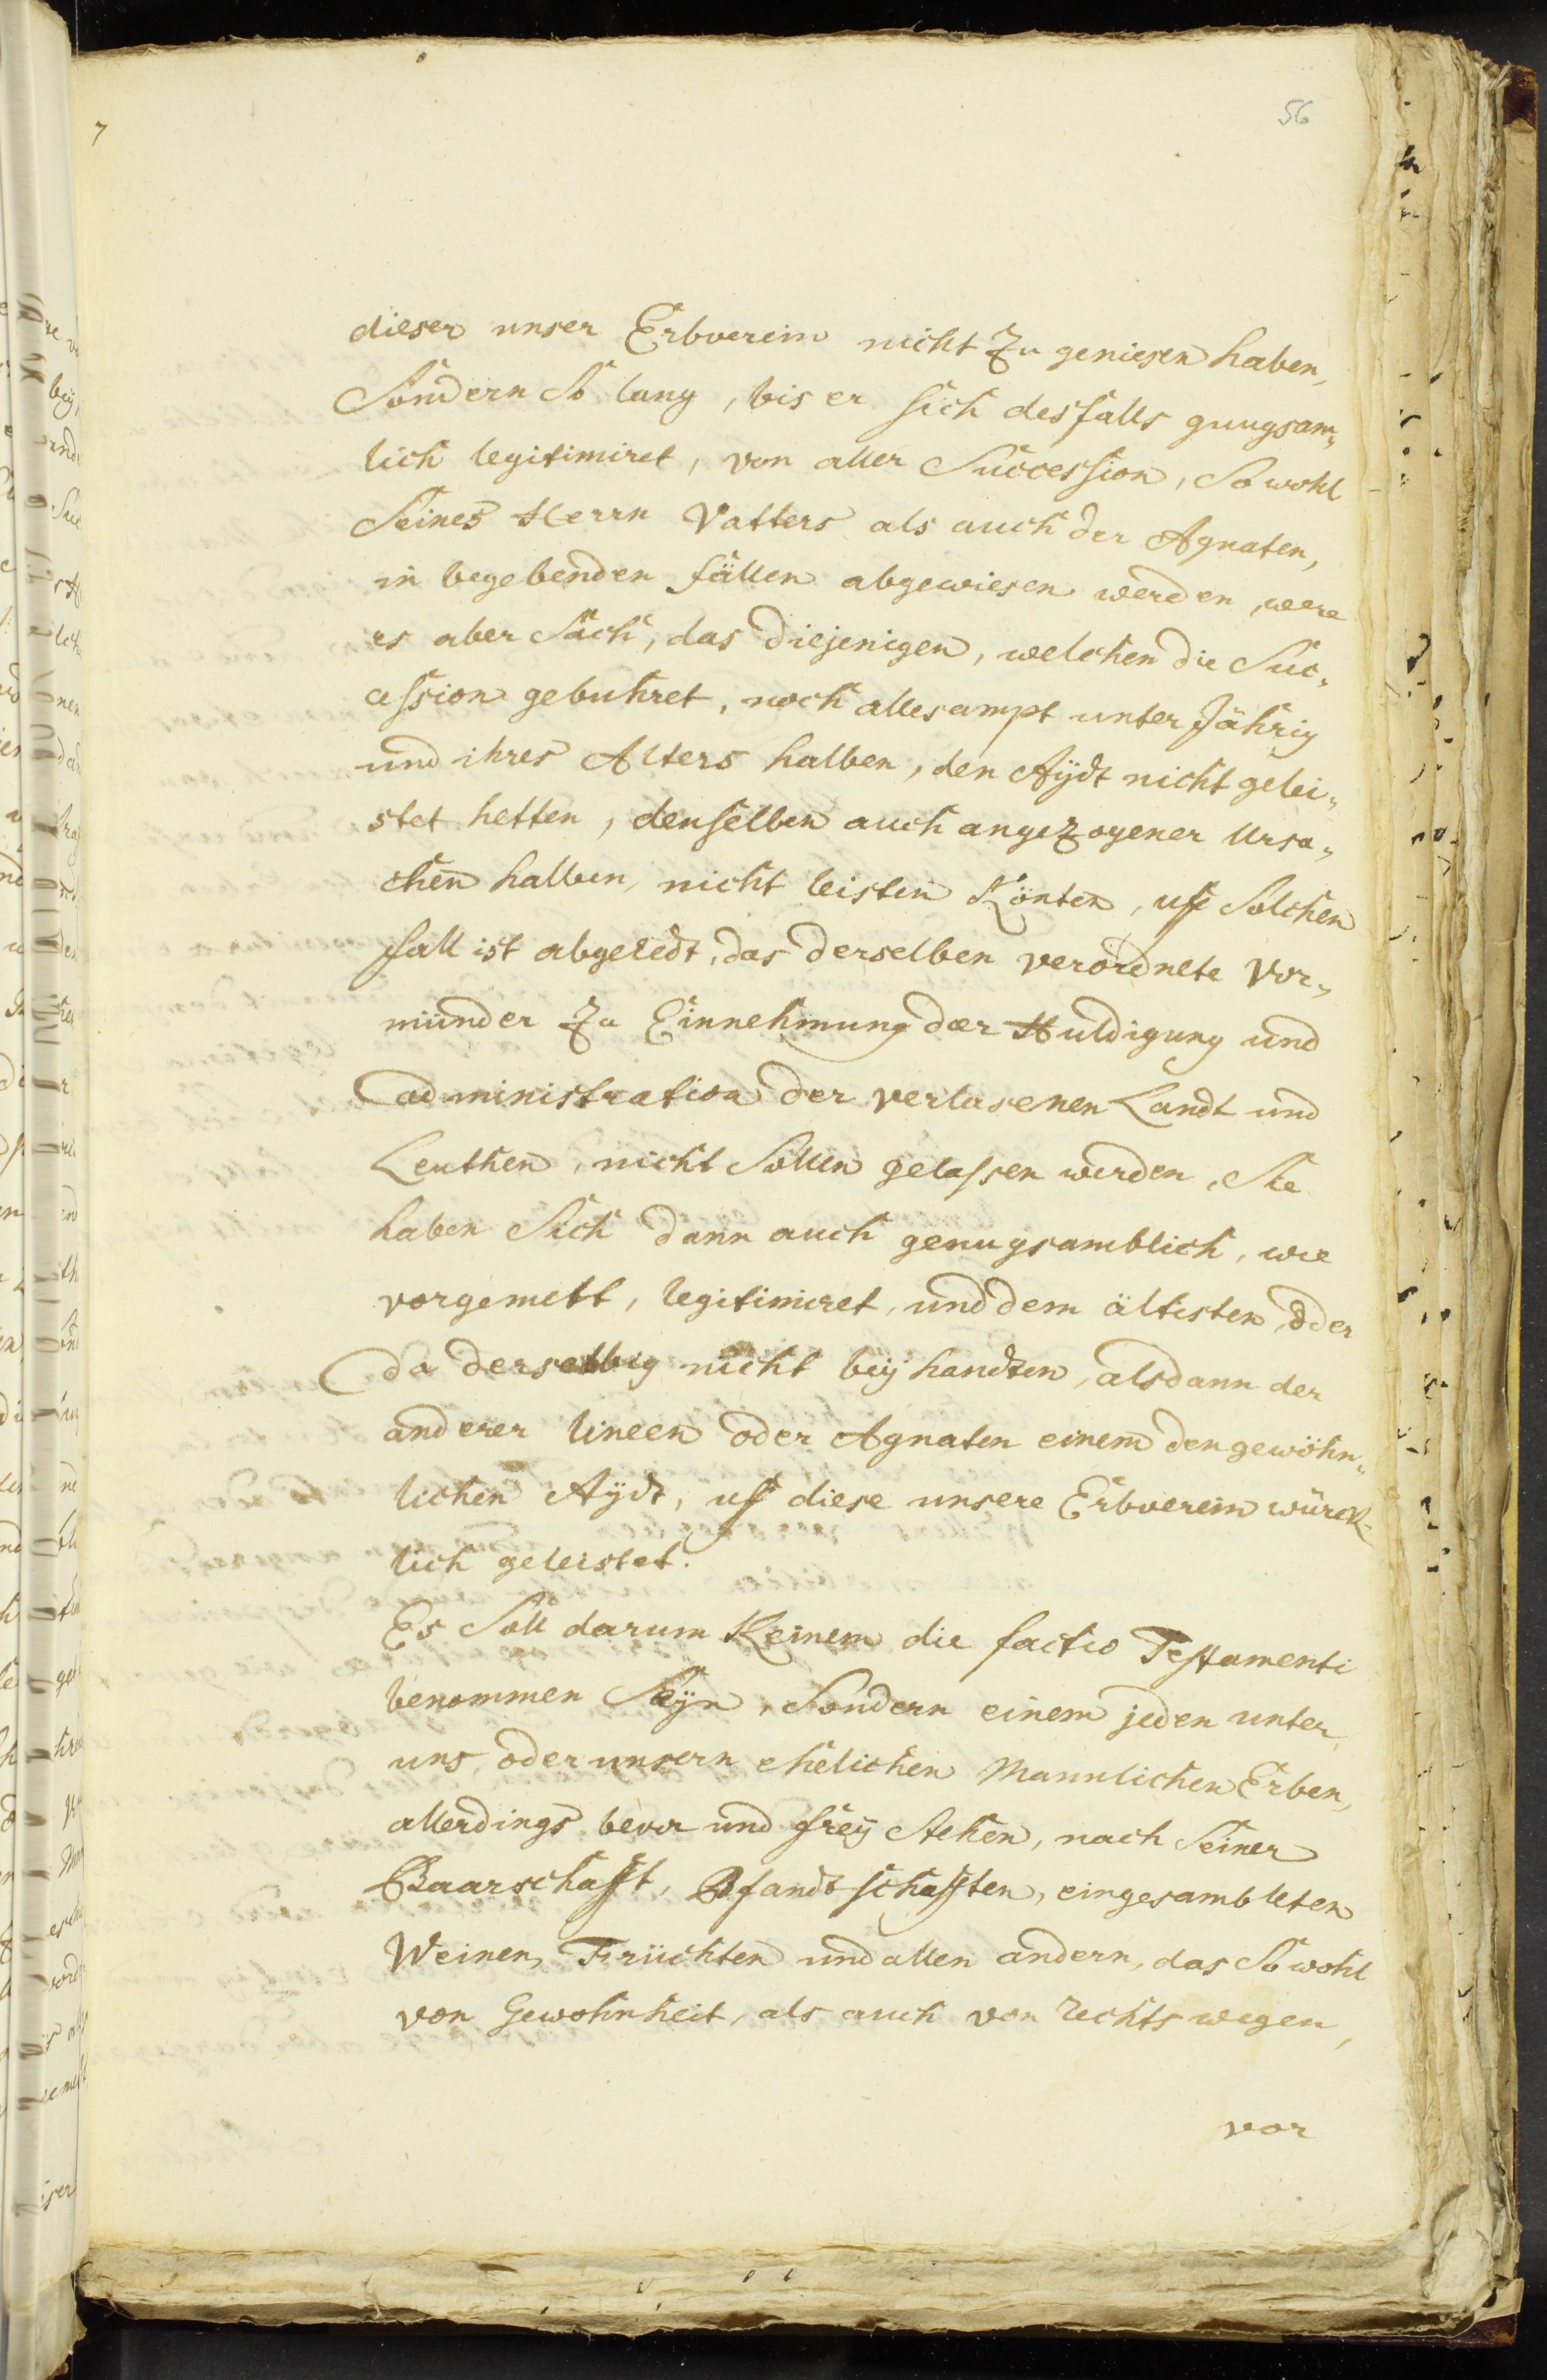 56
dieser unser Erbverein nicht Zu geniesen haben,
Sondern So lang, bis er sich desfalls gnugsam„
lich legitimiret, von aller Succession, So wohl
Seines Herrn Vatters als auch der Agnaten,
in begebenden fällen abgewiesen werden, were
es aber Sach, das diejenigen, welchen die Suc„
cession gebuhret, noch allesampt unter Jährig
und ihres Alters halben, den Aÿdt nicht gelei„
stet hetten, denselben auch angezogener Ursa„
chen halben, nicht leisten Könten, uff Solchen
fall ist abgeredt, das derselben verordnete Vor„
münder Zu Einnehmung der Huldigung und
administration der verlasenen Landt und
Leuthen, nicht Sollen gelassen werden, Sie
haben Sich dann auch genugsamblich, wie
vorgemelt, legitimiret, und dem ältisten, oder
da derselbig nicht beÿ handten, alsdann der
anderer lineen oder Agnaten einem den gewöhn„
lichen Aÿdt, uff diese unsere Erbverein würck-
lich geleistet.
Es Soll darum Keinem die factio Testamenti
benommen Seÿn, Sondern einem jeden unter
uns, oder unsern ehelichen Mannlichen Erben,
allerdings bevor und freÿ stehen, nach Seiner
Baarschafft, Pfandtschafften, eingesambleten
Weinen, Früchten und allen andern, das So wohl
von Gewohnheit, als auch von rechts wegen,
vor